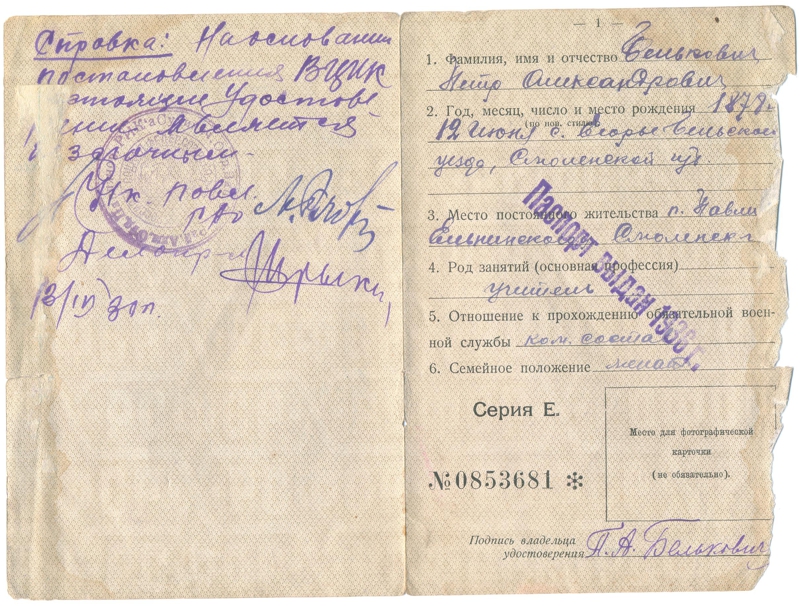 Справка: На основании
постановления ВЦИК
стоящие Удостове
является
за
12/IV 30 г.
— 1 —
1. Фамилия, имя и отчество Белькович
Петр Александрович
2. Год, месяц, число и место рождения 1878 г.
(по нов. стилю)
12 июня с. Егорье Бельской
уезда, Смоленской губ.
3. Место постоянного жительства п. Павли
Ельнинского Смоленск
4. Род занятий (основная профессия)
учитель
5. Отношение к прохождению обязательной воен-
ной службы ком. соста
6. Семейное положение женат
Паспорт выдан 1936 г.
Серия Е.
№ 0853681 ✻
Место для фотографической
карточки
(не обязательно).
Подпись владельца
удостоверения П. А. Белькович